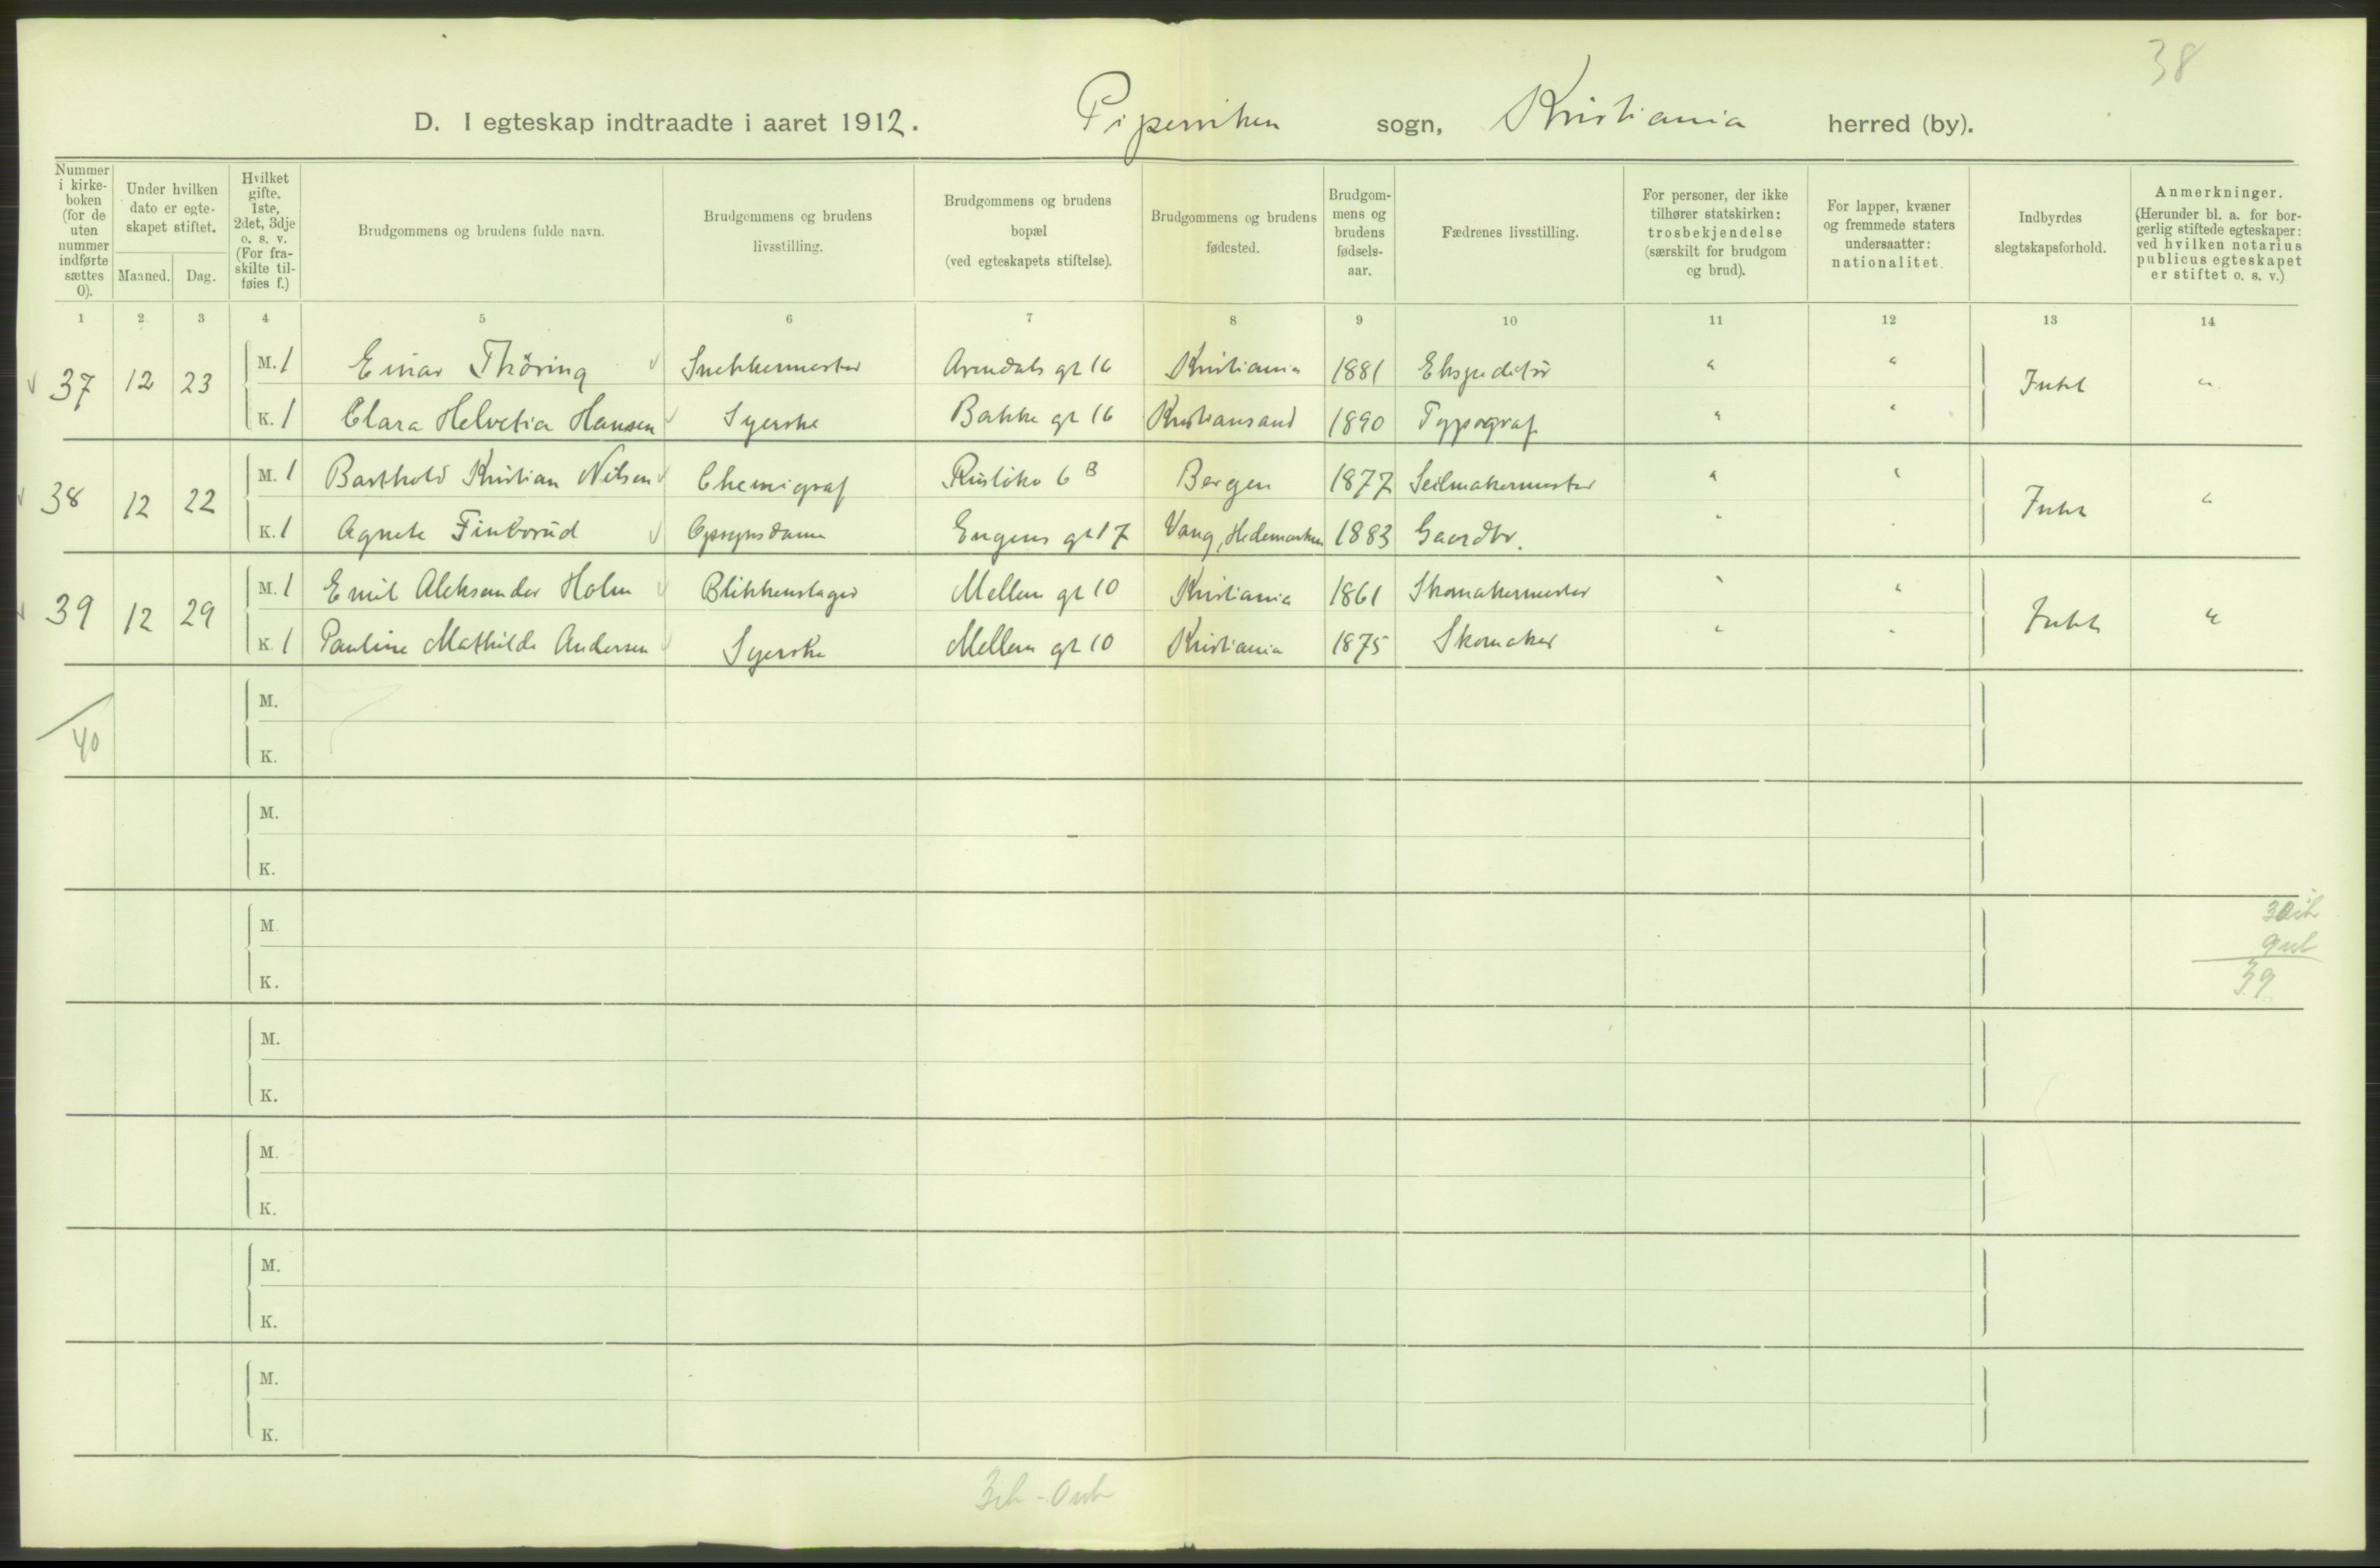 38
D. I egteskap indtraadte i aaret 1912. Piperviken sogn, Kristiania herred (by).
Nummer i kirke-boken (for de uten nummer indførte sættes 0). Under hvilken dato er egte-skapet stiftet. Maaned. Dag. Hvilket gifte. 1ste, 2det, 3dje o. s. v. (For fra-skilte til-føies f.) Brudgommens og brudens fulde navn. Brudgommens og brudens livsstilling. Brudgommens og brudens bopæl (ved egteskapets stiftelse). Brudgommens og brudens fødested. Brudgom-mens og brudens fødsels-aar. Fædrenes livsstilling. For personer, der ikke tilhører statskirken: trosbekjendelse (særskilt for brudgom og brud). For lapper, kvæner og fremmede staters undersaatter: nationalitet. Indbyrdes slegtskapsforhold. Anmerkninger. (Herunder bl. a. for bor-gerlig stiftede egteskaper: ved hvilken notarius publicus egteskapet er stiftet o. s. v.)
1 2 3 4 5 6 7 8 9 10 11 12 13 14
37 12 23 M. 1 Einar Thöring Snekkermester Arendals gt 16 Kristiania 1881 Ekspeditör " " Intet "
K. 1 Clara Helvetia Hansen Syerske Bakke gt 16 Kristiansand 1890 Typograf " "
38 12 22 M. 1 Barthold Kristian Nilsen Chemigraf 6 B Bergen 1877 Seilmakermester " " Intet "
K. 1 Agnete Finborud Opsynsdame Eugens gt 17 Vang, Hedemarken 1883 Gaardbr. " "
39 12 29 M. 1 Emil Aleksander Holm Blikkenslager Mellem gt 10 Kristiania 1861 Skomakermester " " Intet "
K. 1 Pauline Mathilde Andersen Syerske Mellem gt 10 Kristiania 1875 Skomaker " "
M.
40
K.
M.
K.
M.
30 ib
9 ub
K.
39
M.
K.
M.
K.
M.
K.
M.
K.
3 ib - 0 ub